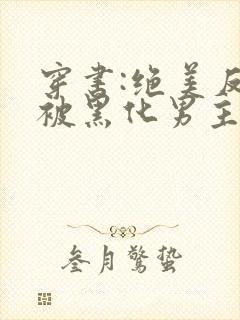 穿书:绝美反
被黑化男主
叁月驚蛰